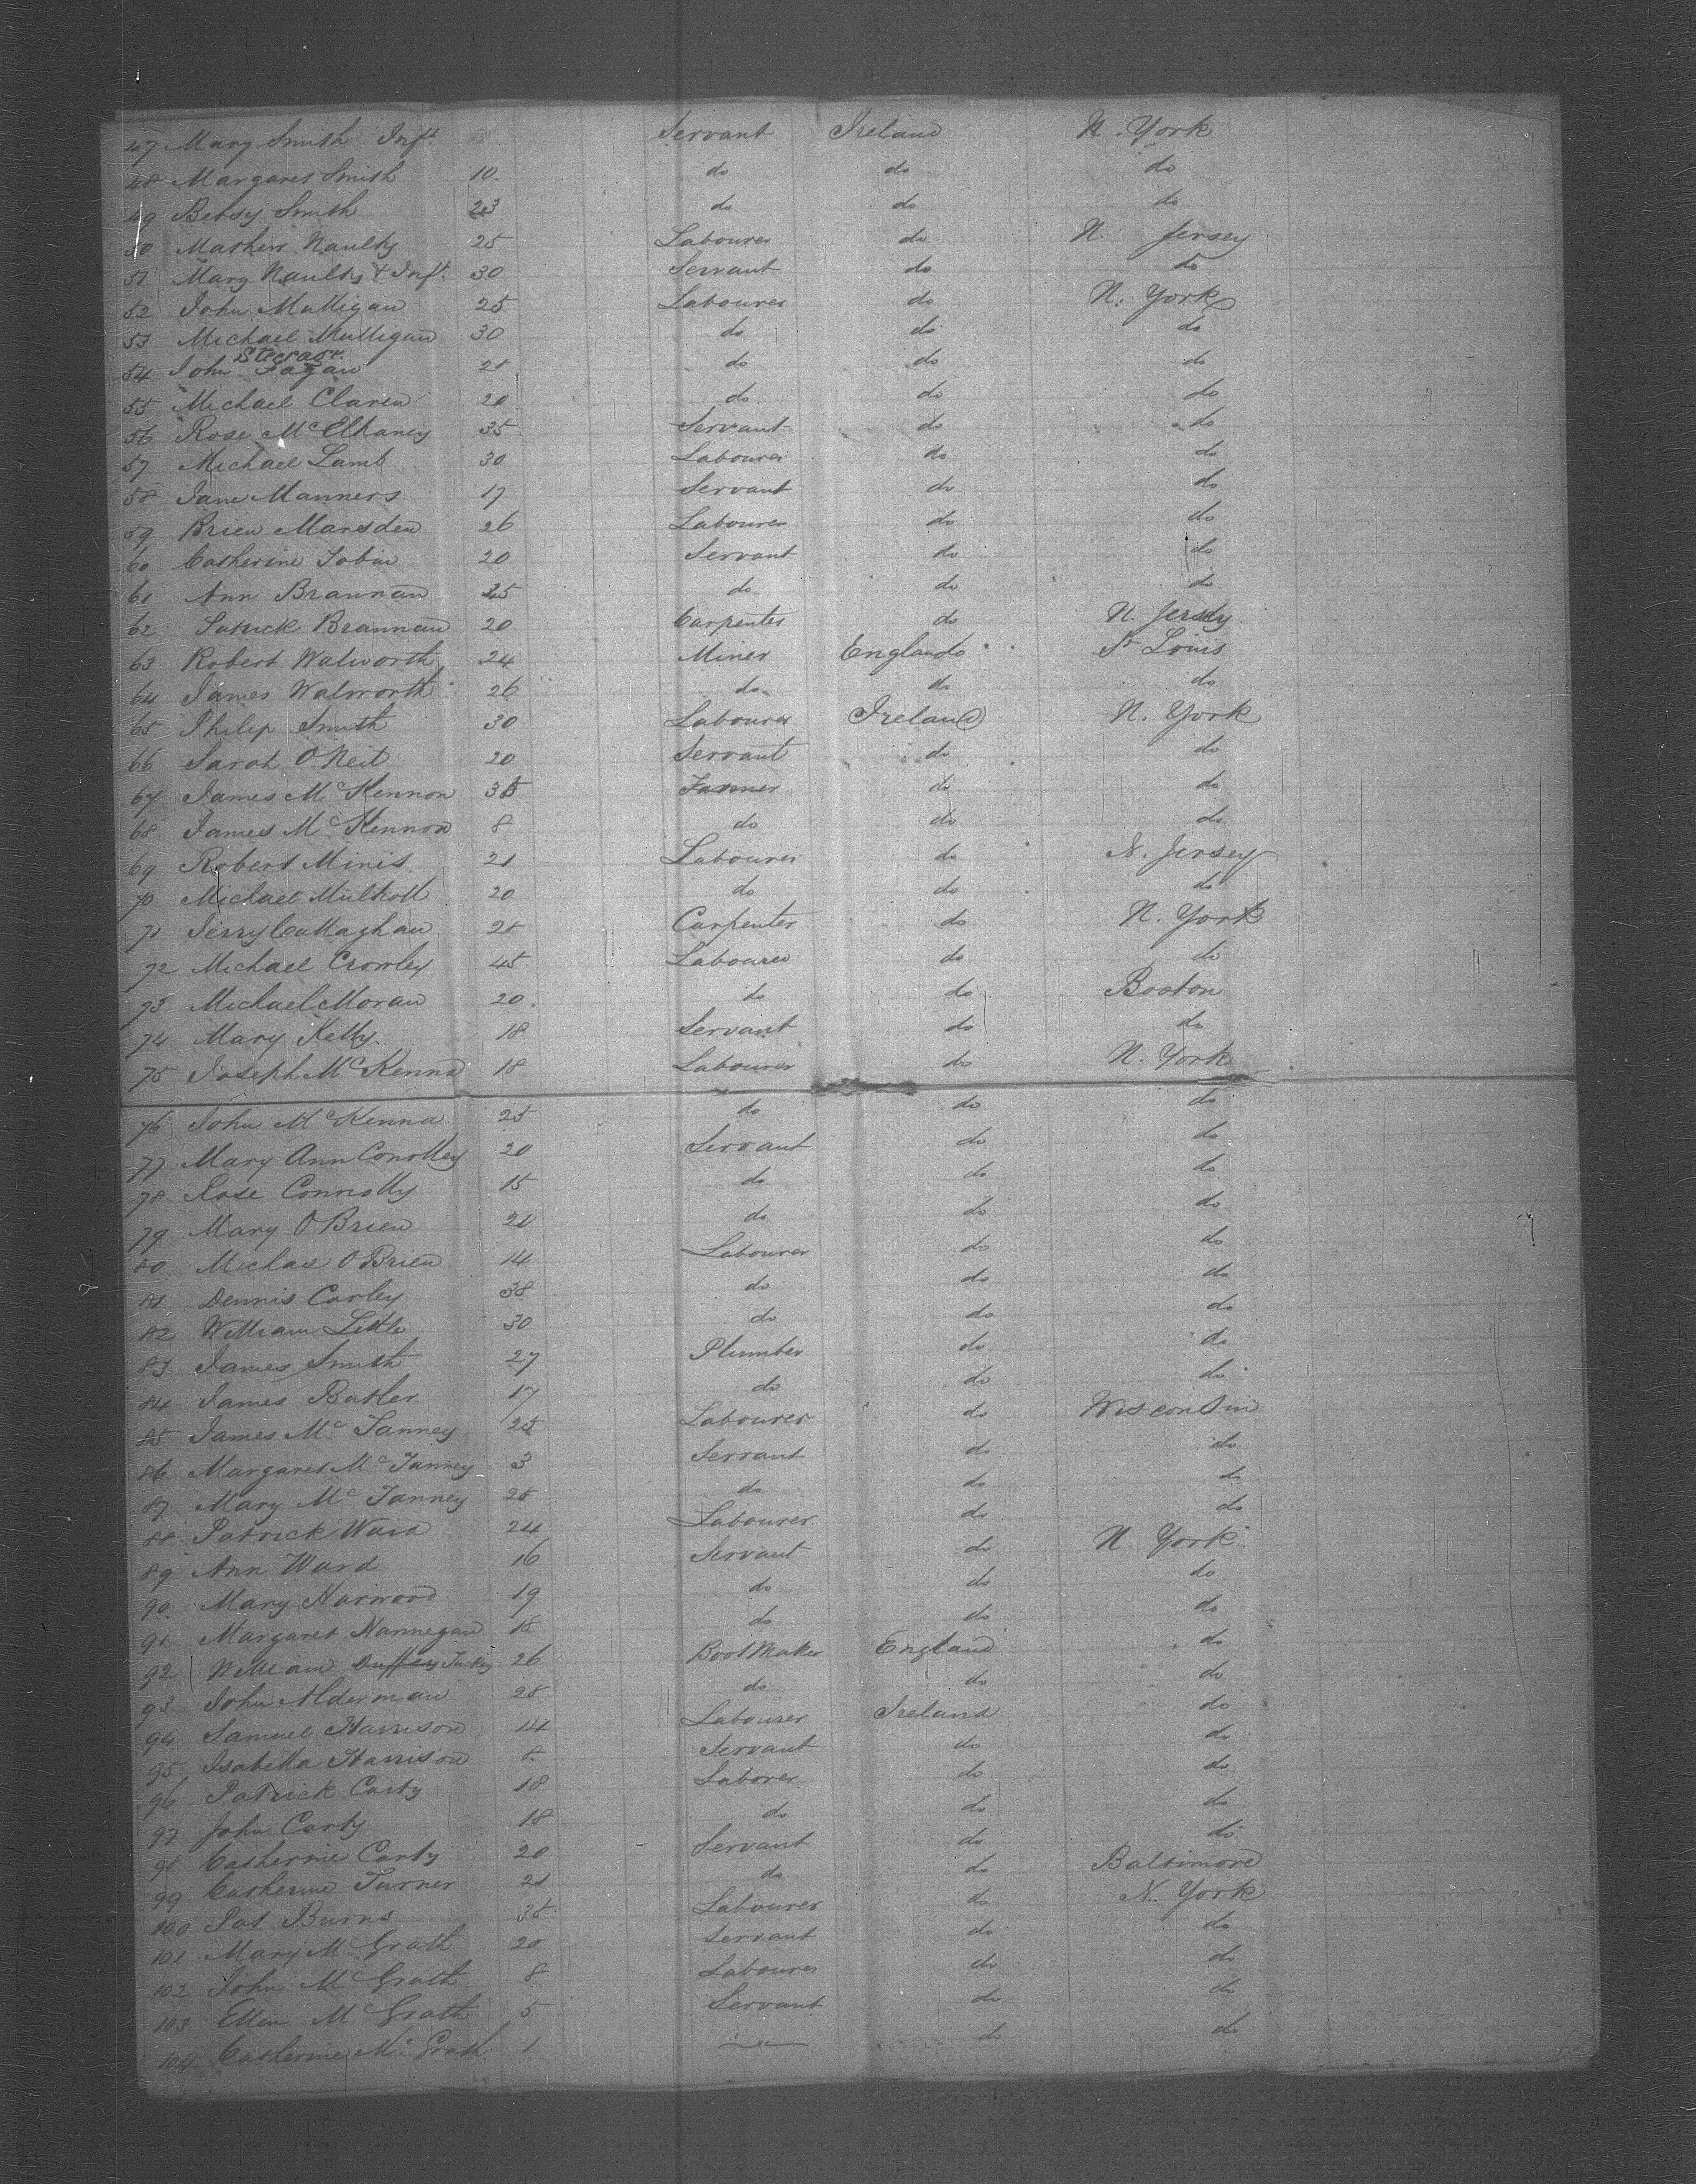 47 Mary Smith Inft Servant Ireland N. York
48 Margaret Smith 10 do do do
49 Betsy Smith 23 do do do
50 Mathew Naulty 25 Labourer do N. Jersey
51 Mary Naulty & Inft 30 Servant do do
52 John Mulligan 25 Labourer do N. York
53 Michael Mulligan 30 do do do
Steerage
54 John Fagan do do do
55 Michael Claren 20 do do do
56 Rose McElhaney 35 Servant do do
57 Michael Lamb 30 Labourer do do
58 Jane Manners 17 Servant do do
59 Brien Marsden 26 Labourer do do
60 Catherine Tobin 20 Servant do do
61 Ann Brannan 25 do do do
62 Patrick Brannan 20 Carpenter do N. Jersey
63 Robert Walworth 24 Miner England St Louis
64 James Walworth 26 do do do
65 Philip Smith 30 Labourer Ireland N. York
66 Sarah O Neil 20 Servant do do
67 James McKennon 35 Farmer do do
68 James McKennon 8 do do do
69 Robert Minis 21 Labourer do N. Jersey
70 Michael 20 do do do
71 Jerry Callaghan Carpenter do N. York
72 Michael Crowley 45 Labourer do do
73 Michael Moran 20 do do Boston
74 Mary Kelly 18 Servant do do
75 Joseph McKenna 18 Labourer do N. York
76 John McKenna 25 do do do
77 Mary Ann Conolley 20 Servant do do
78 Rose Connolly 15 do do do
79 Mary O Brien 21 do do do
80 Michael O Brien 14 Labourer do do
81 Dennis Corley 38 do do do
82 William Little 30 do do do
83 James Smith 27 Plumber do do
84 James Butler 17 do do do
85 James McTanney 25 Labourer do Wisconsin
86 Margaret McTanney 3 Servant do do
87 Mary McTanney 25 do do do
88 Patrick Ward 24 Labourer do do
89 Ann Ward 16 Servant do N. York
90 Mary Harwood 19 do do do
91 Margaret Hannegan 18 do do do
92 William Duffey 26 Boot Maker England do
93 John Alderman 28 do do do
94 Samuel Harrison 14 Labourer Ireland do
95 Isabella Harrison 8 Servant do do
96 Patrick Carty 18 Laborer do do
97 John Carty 18 do do do
98 Catherine Carty 20 Servant do do
99 Catherine Turner 21 do do Baltimore
100 Pat Burns 35 Labourer do N. York
101 Mary McGrath 20 Servant do do
102 John McGrath 8 Labourer do do
103 Ellen McGrath 5 Servant do do
104 Catherine McGrath 1 do do